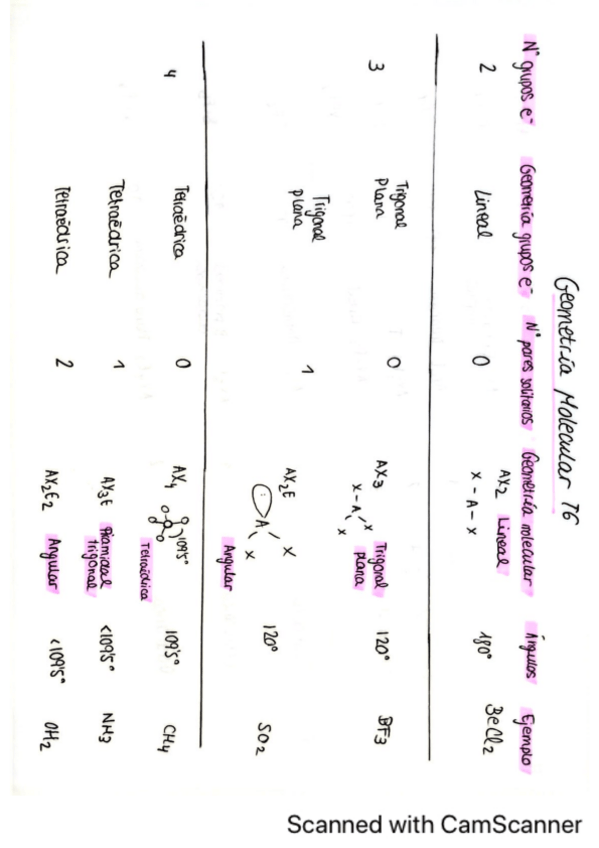 Geometría Molecular T6
Nº grupos e⁻ Geometría grupos e⁻ Nº pares solitarios Geometría molecular Ángulos Ejemplo
2 Lineal 0 AX2 Lineal 180° BeCl2
X - A - X
3 Trigonal plana 0 AX3 Trigonal plana 120° BF3
X - A
X
X
Trigonal plana 1 AX2E Angular 120° SO2
: A
X
X
4 Tetraédrica 0 AX4 109'5° Tetraédrica 109'5° CH4
Tetraédrica 1 AX3E Piramidal trigonal <109'5° NH3
Tetraédrica 2 AX2E2 Angular <109'5° OH2
Scanned with CamScanner